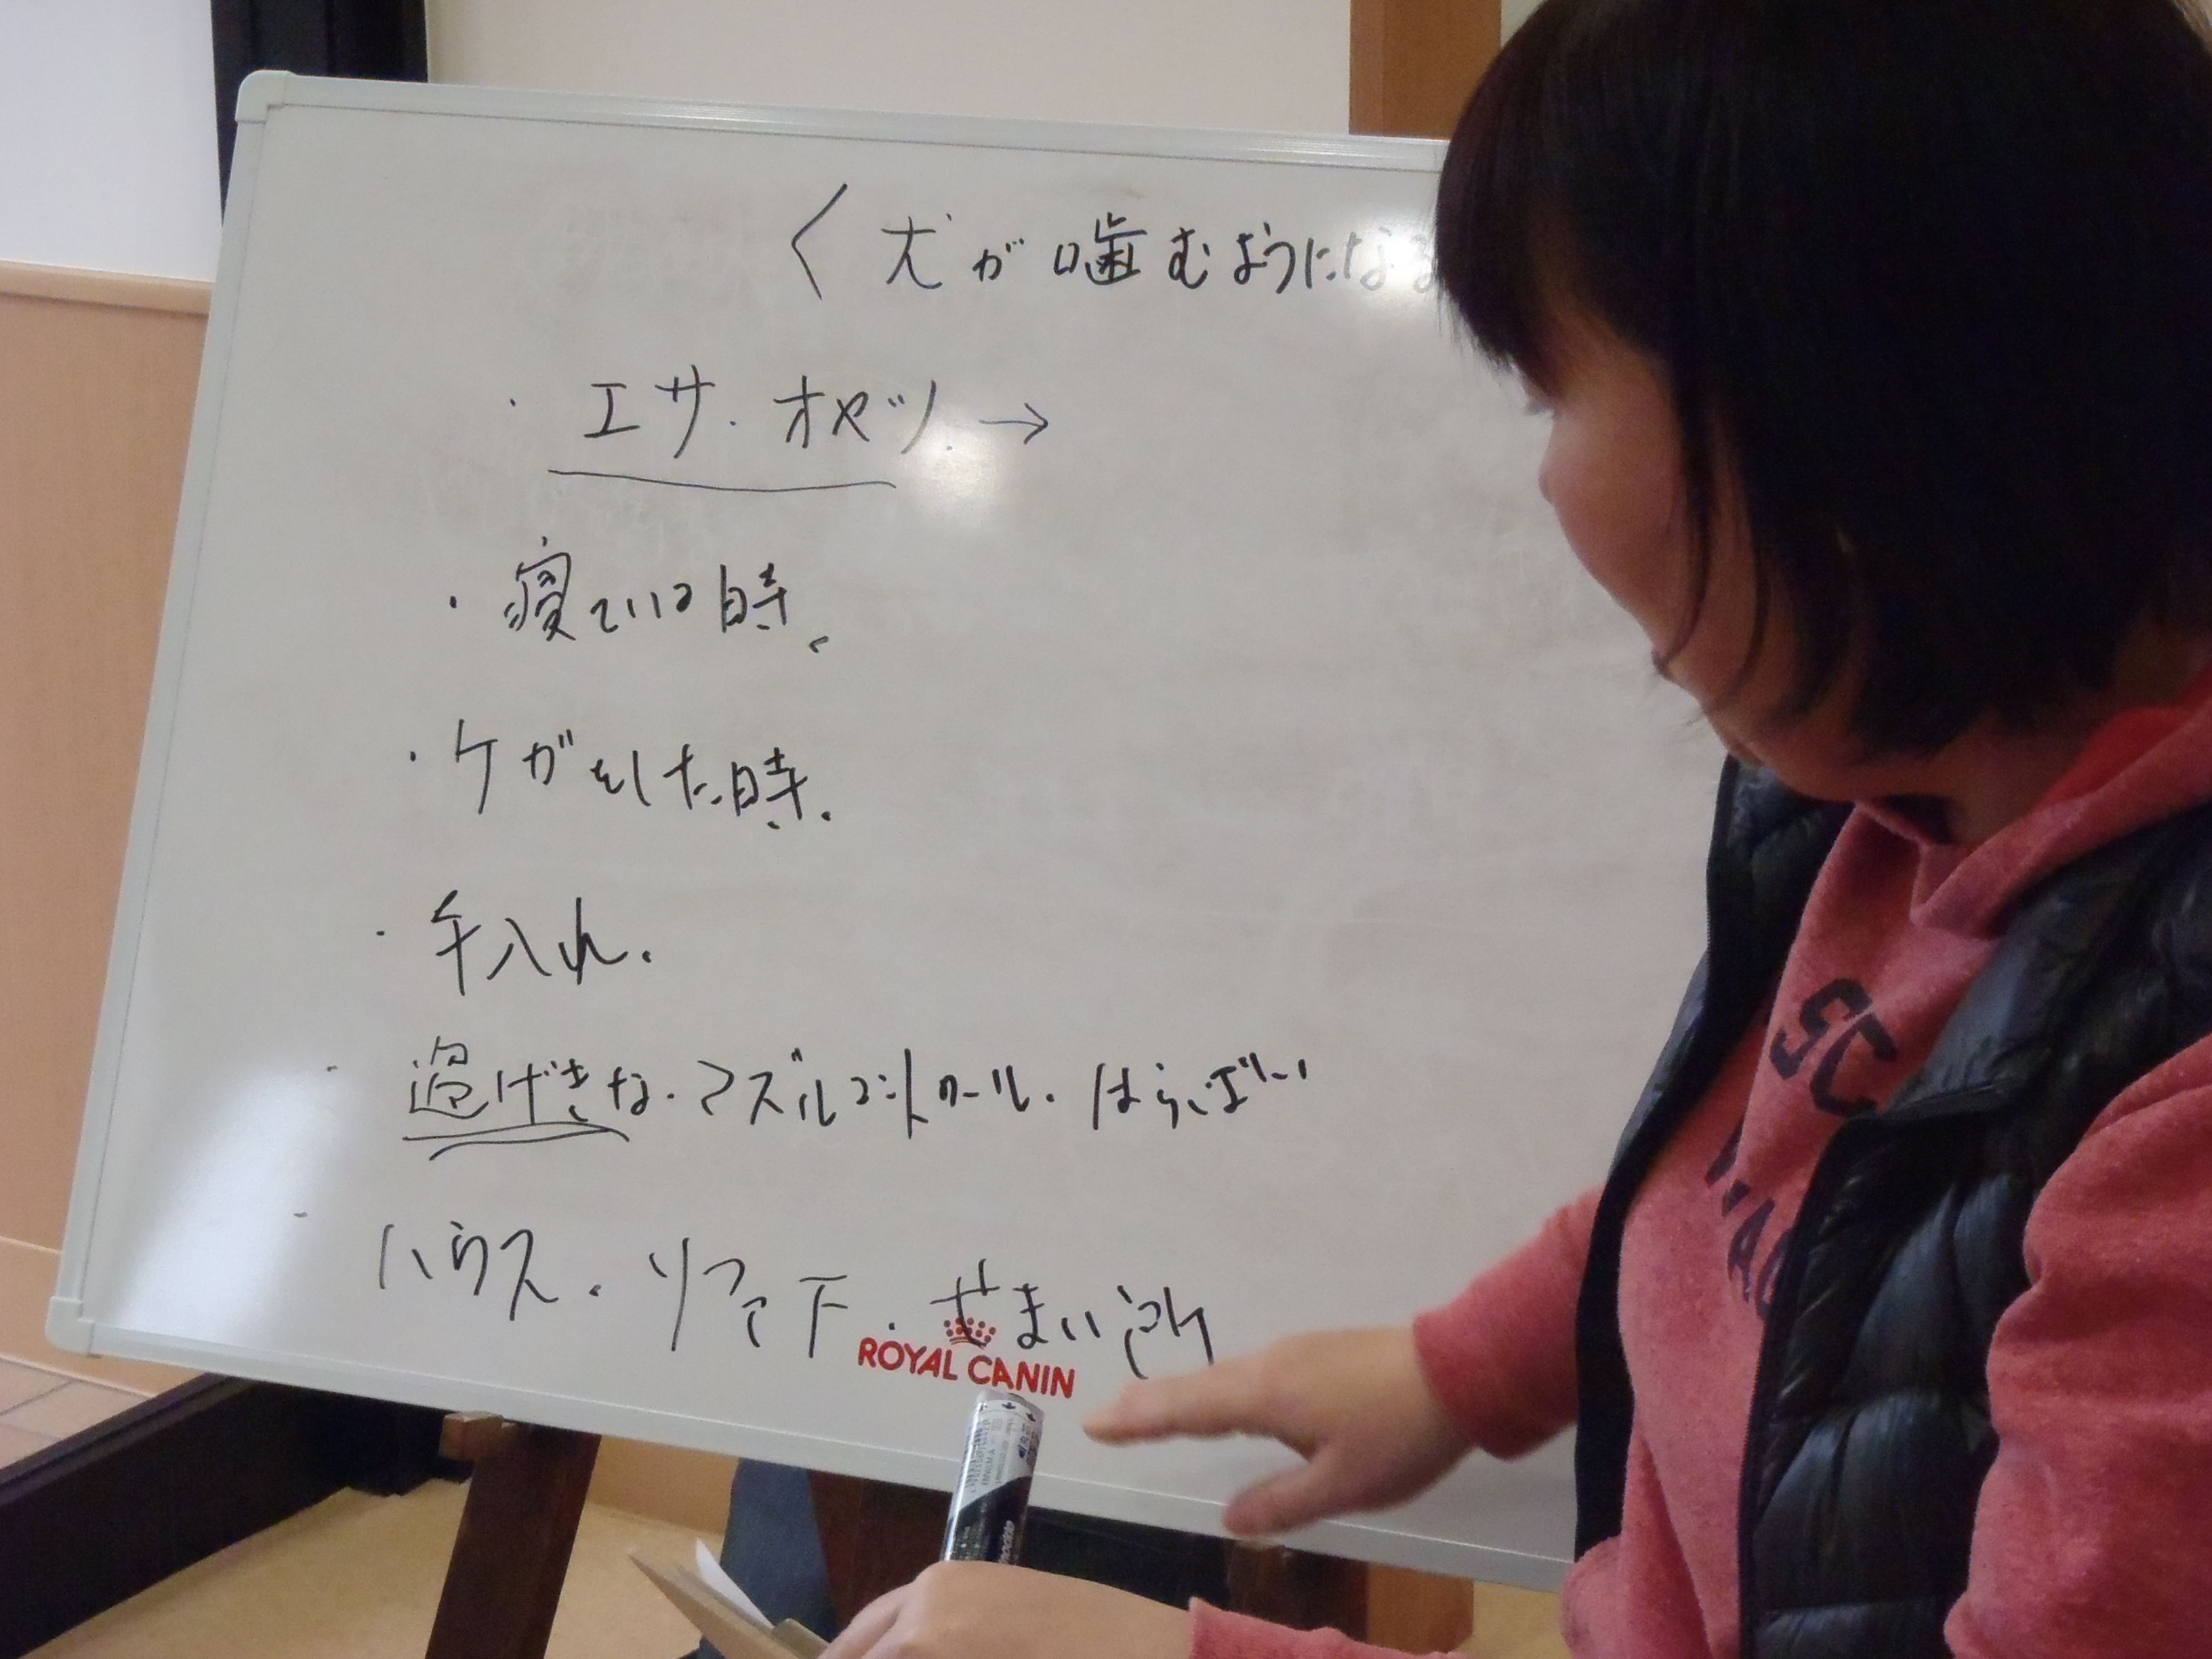 〈犬が噛むようになる
・エサ・オヤツ→
・寝ている時。
・ケガをした時.
・手入れ.
・過げきな・マズルコントロール.
・ハウス.ソファ下.せまい所
ROYAL CANIN
SC